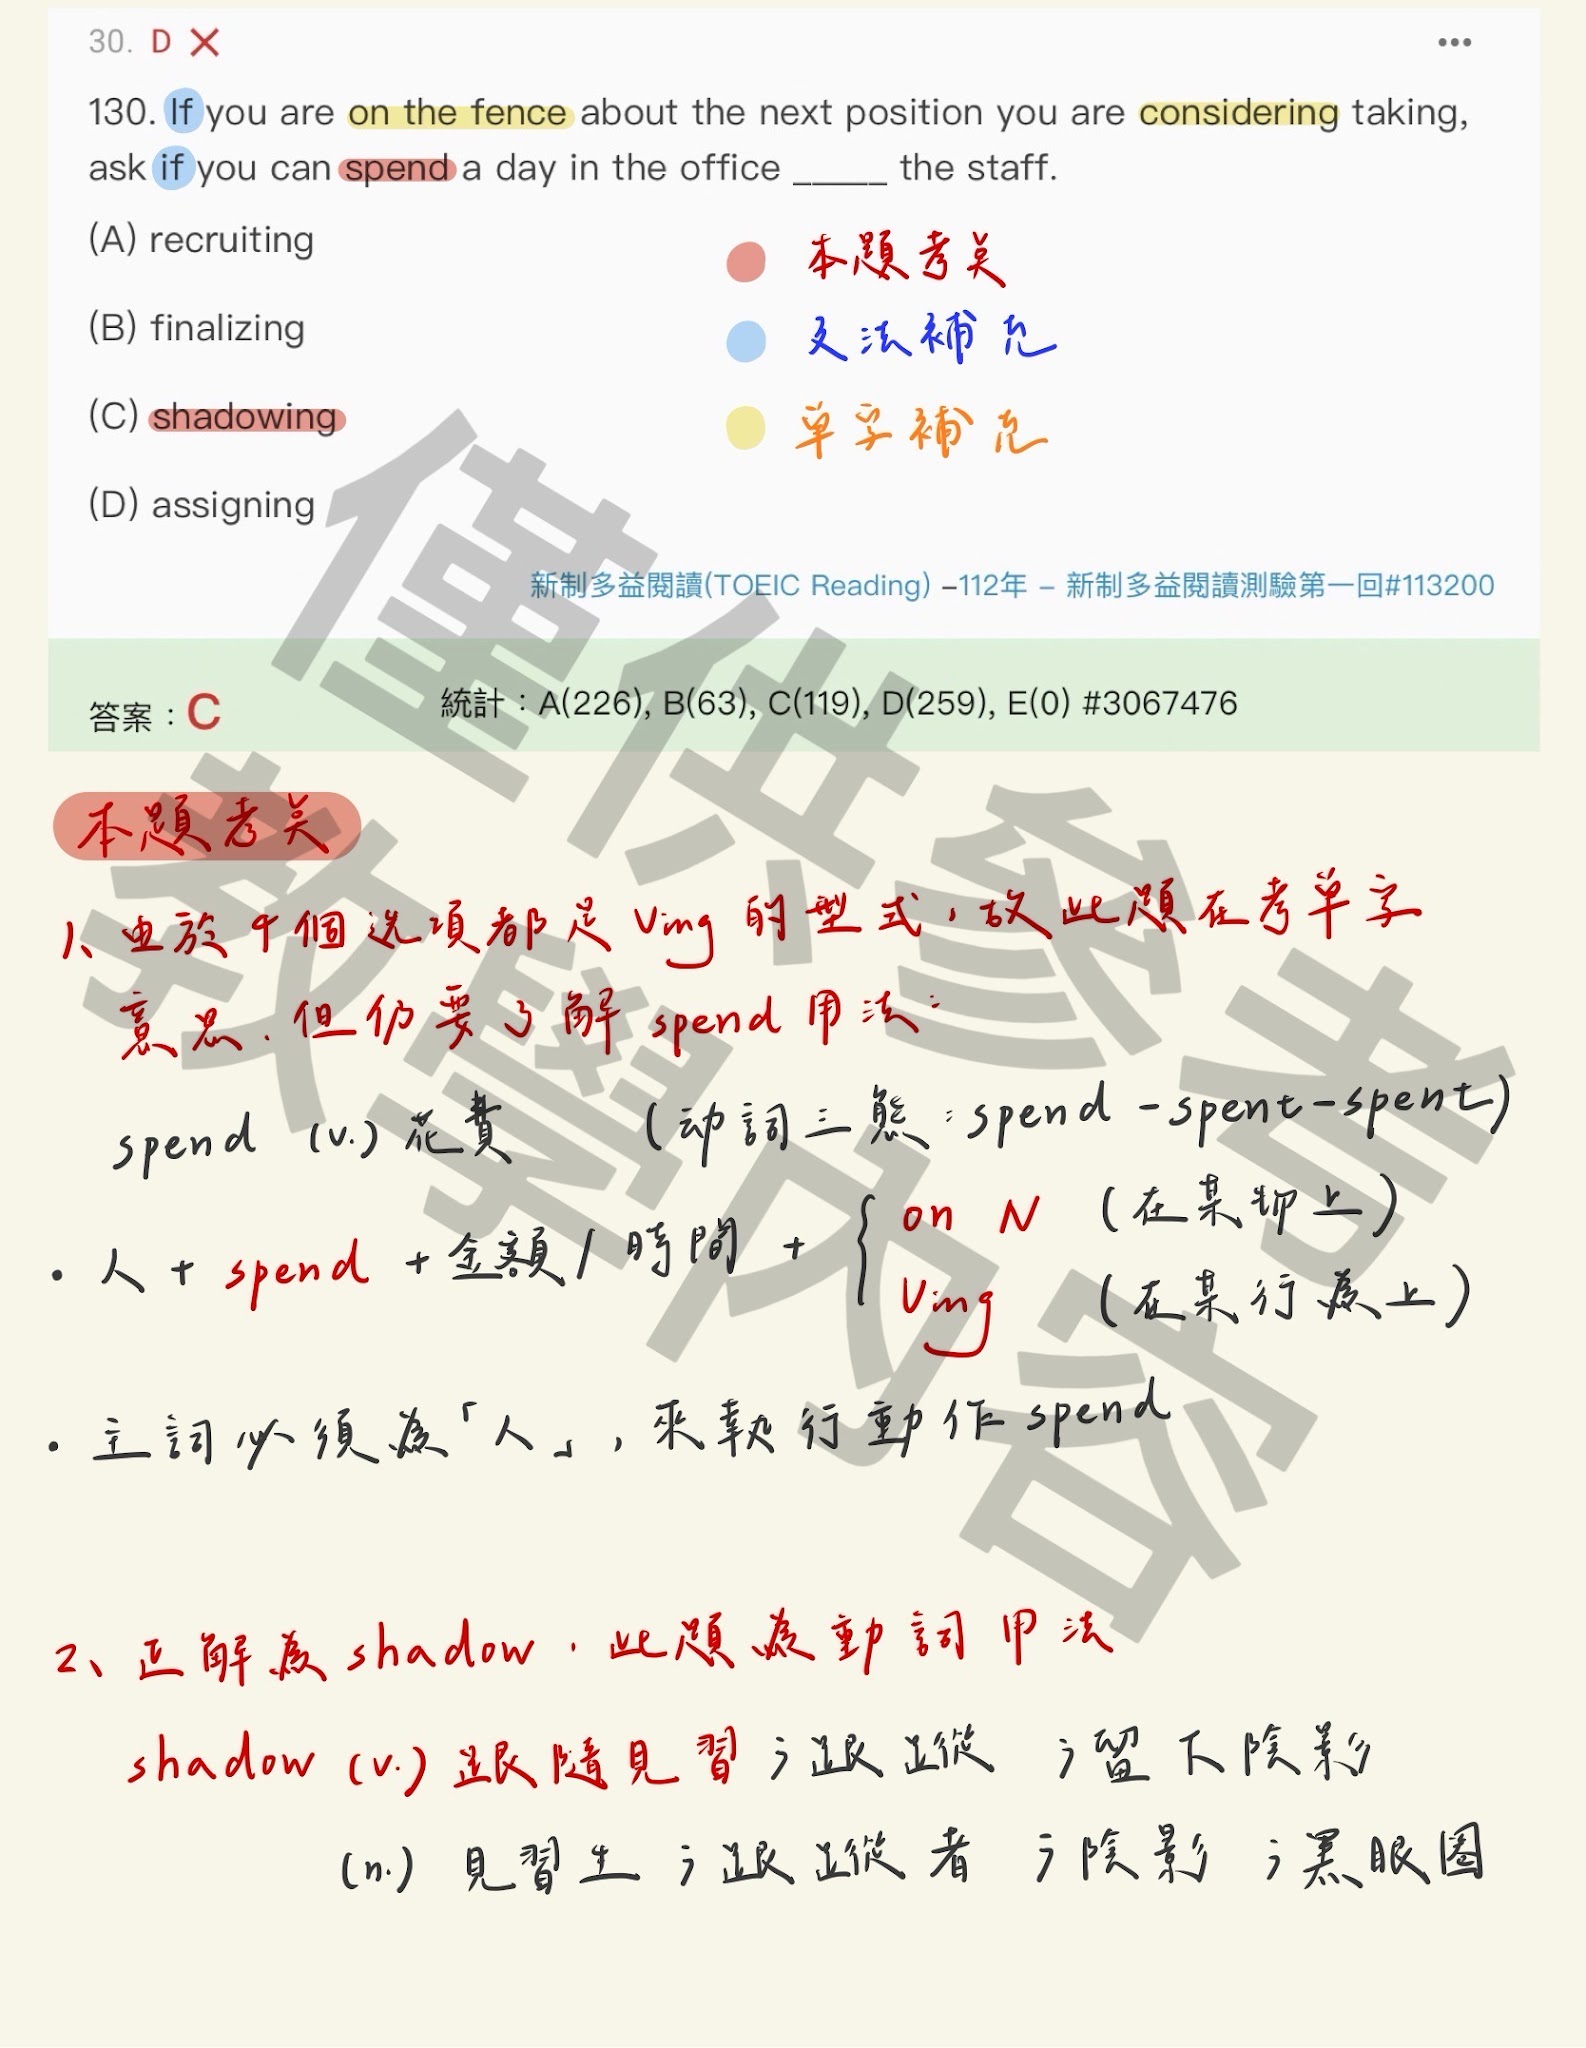 30. D ✕
130. If you are on the fence about the next position you are considering taking,
ask if you can spend a day in the office _____ the staff.
(A) recruiting
(B) finalizing
(C) shadowing
(D) assigning
本題考点
文法補充
單字補充
新制多益閱讀(TOEIC Reading) –112年 – 新制多益閱讀測驗第一回#113200
答案：C
統計：A(226), B(63), C(119), D(259), E(0) #3067476
本題考点
1、由於4個选項都是Ving的型式，故此題在考單字
意思，但仍要了解spend用法：
spend (v.) 花費 (动詞三態：spend - spent - spent)
• 人 + spend + 金額 / 時間 + { on N (在某物上)
Ving (在某行為上)
• 主詞必須為「人」，來執行動作spend
2、正解為shadow，此題為動詞用法
shadow (v.) 跟隨見習；跟蹤；留下陰影
(n.) 見習生；跟蹤者；陰影；黑眼圈
僅供參考
教學內容